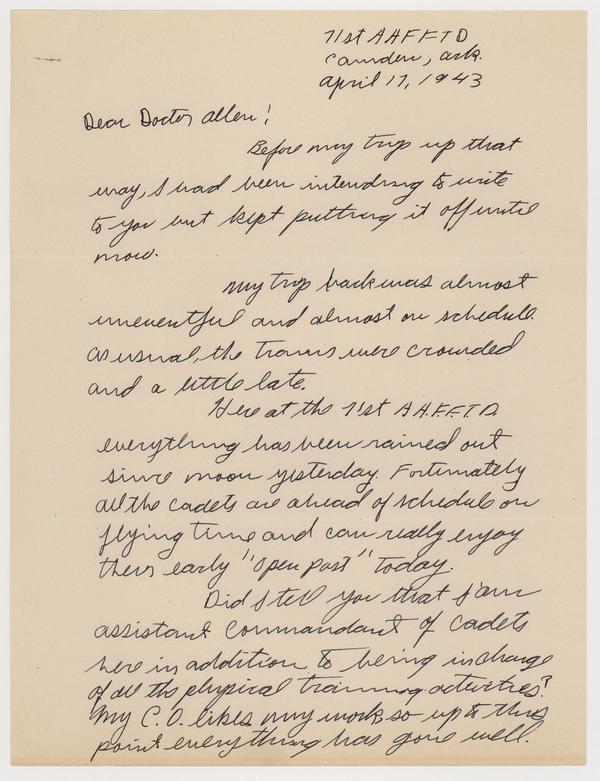 71st AAFFTD
Camden, Ark.
April 17, 1943
Dear Doctor Allen!
Before my trip up that
way, I had been intending to write
to you but kept putting it off until
now.
My trip back was almost
uneventful and almost on schedule.
As usual, the trains were crowded
and a little late.
Here at the 71st A.A.F.F.T.D.
everything has been rained out
since noon yesterday. Fortunately
all the cadets are ahead of schedule on
flying time and can really enjoy
their early "open post" today.
Did I tell you that I am
assistant Commandant of Cadets
here in addition to being in charge
of all the physical training activities?
My C.O. likes my work so up to this
point everything has gone well.